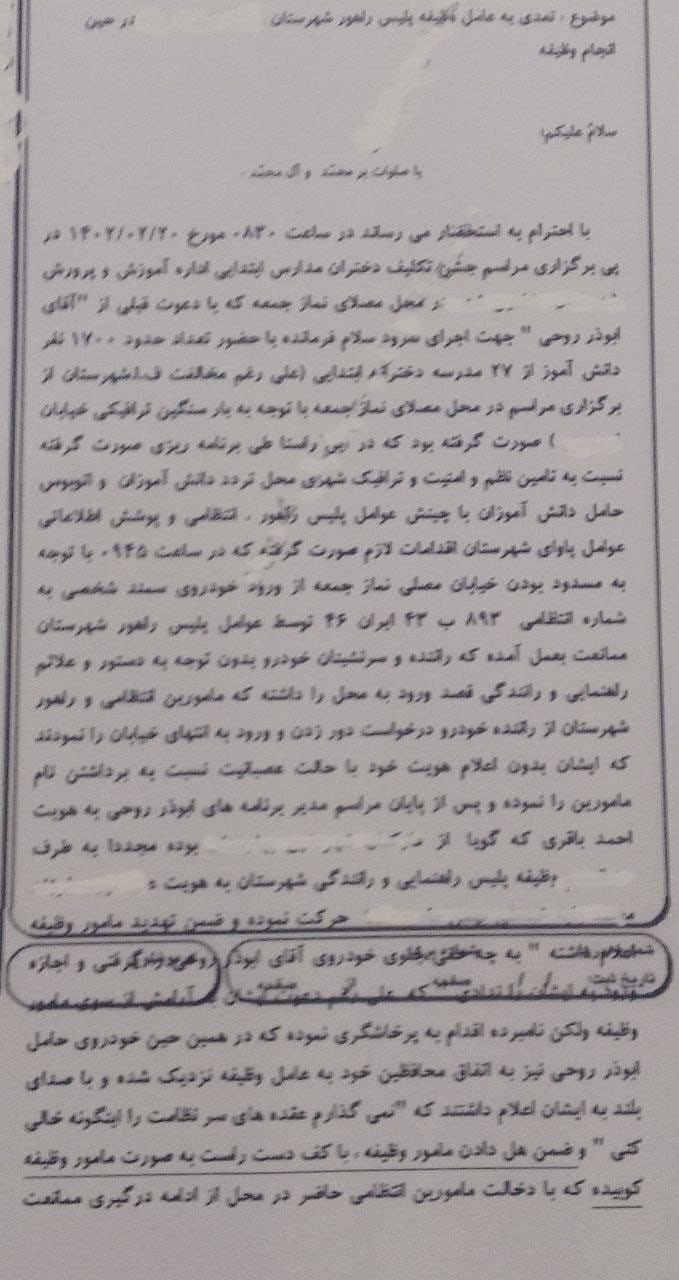 موضوع : تعدی به عامل وظیفه پلیس راهور شهرستان در حین
انجام وظیفه
سلام علیکم؛
با صلوات بر محمد و آل محمد .
با احترام به استحضار می رساند در ساعت ۰۸۳۰ مورخ ۱۴۰۲/۰۲/۲۰ در
پی برگزاری مراسم جشن تکلیف دختران مدارس ابتدایی اداره آموزش و پرورش
در محل مصلای نماز جمعه که با دعوت قبلی از "آقای
ابوذر روحی " جهت اجرای سرود سلام فرمانده با حضور تعداد حدود ۱۷۰۰ نفر
دانش آموز از ۲۷ مدرسه دخترانه ابتدایی (علی رغم مخالفت ف.ا.شهرستان از
برگزاری مراسم در محل مصلای نماز جمعه با توجه به بار سنگین ترافیکی خیابان
) صورت گرفته بود که در این راستا طی برنامه ریزی صورت گرفته
نسبت به تامین نظم و امنیت و ترافیک شهری محل تردد دانش آموزان و اتوبوس
حامل دانش آموزان با چینش عوامل پلیس راهور ، انتظامی و پوشش اطلاعاتی
عوامل پاوای شهرستان اقدامات لازم صورت گرفته که در ساعت ۰۹۴۵ با توجه
به مسدود بودن خیابان مصلی نماز جمعه از ورود خودروی سمند شخصی به
شماره انتظامی ۸۹۳ ب ۴۳ ایران ۴۶ توسط عوامل پلیس راهور شهرستان
ممانعت بعمل آمده که راننده و سرنشینان خودرو بدون توجه به دستور و علائم
راهنمایی و رانندگی قصد ورود به محل را داشته که مامورین انتظامی و راهور
شهرستان از راننده خودرو درخواست دور زدن و ورود به انتهای خیابان را نمودند
که ایشان بدون اعلام هویت خود با حالت عصبانیت نسبت به برداشتن نام
مامورین را نموده و پس از پایان مراسم مدیر برنامه های ابوذر روحی به هویت
احمد باقری که گویا از بوده مجددا به طرف
وظیفه پلیس راهنمایی و رانندگی شهرستان به هویت
حرکت نموده و ضمن تهدید مامور وظیفه
داشته " به چه حقی جلوی خودروی آقای ابوذر روحی گرفتی و اجازه
ورود به ایشان را ندادی که علی رغم دعوت ایشان به آرامش از سوی مامور
وظیفه ولکن نامبرده اقدام به پرخاشگری نموده که در همین حین خودروی حامل
ابوذر روحی نیز به اتفاق محافظین خود به عامل وظیفه نزدیک شده و با صدای
بلند به ایشان اعلام داشتند که "نمی گذارم عقده های سر نظامت را اینگونه خالی
کنی " و ضمن هل دادن مامور وظیفه ، با کف دست راست به صورت مامور وظیفه
کوبیده که با دخالت مامورین انتظامی حاضر در محل از ادامه درگیری ممانعت